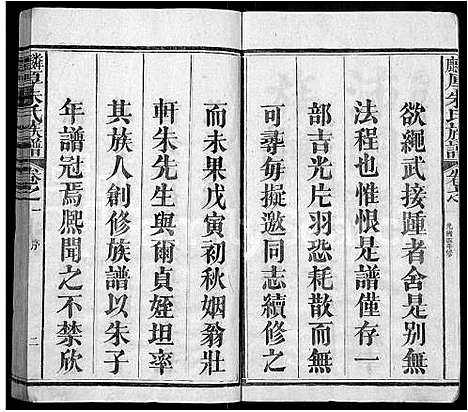 麟厚朱氏族譜
卷之
光緒四年修
欲繩武接踵者舍是別無
法程也惟恨是譜僅存一
部吉光片羽恐耗散而無
可尋每擬邀同志續修之
而未果戊寅初秋姻翁壯
軒朱先生與爾貞姪坦率
其族人創修族譜以朱子
年譜冠焉熈聞之不禁欣
麟厚朱氏族譜
卷之一
序
二